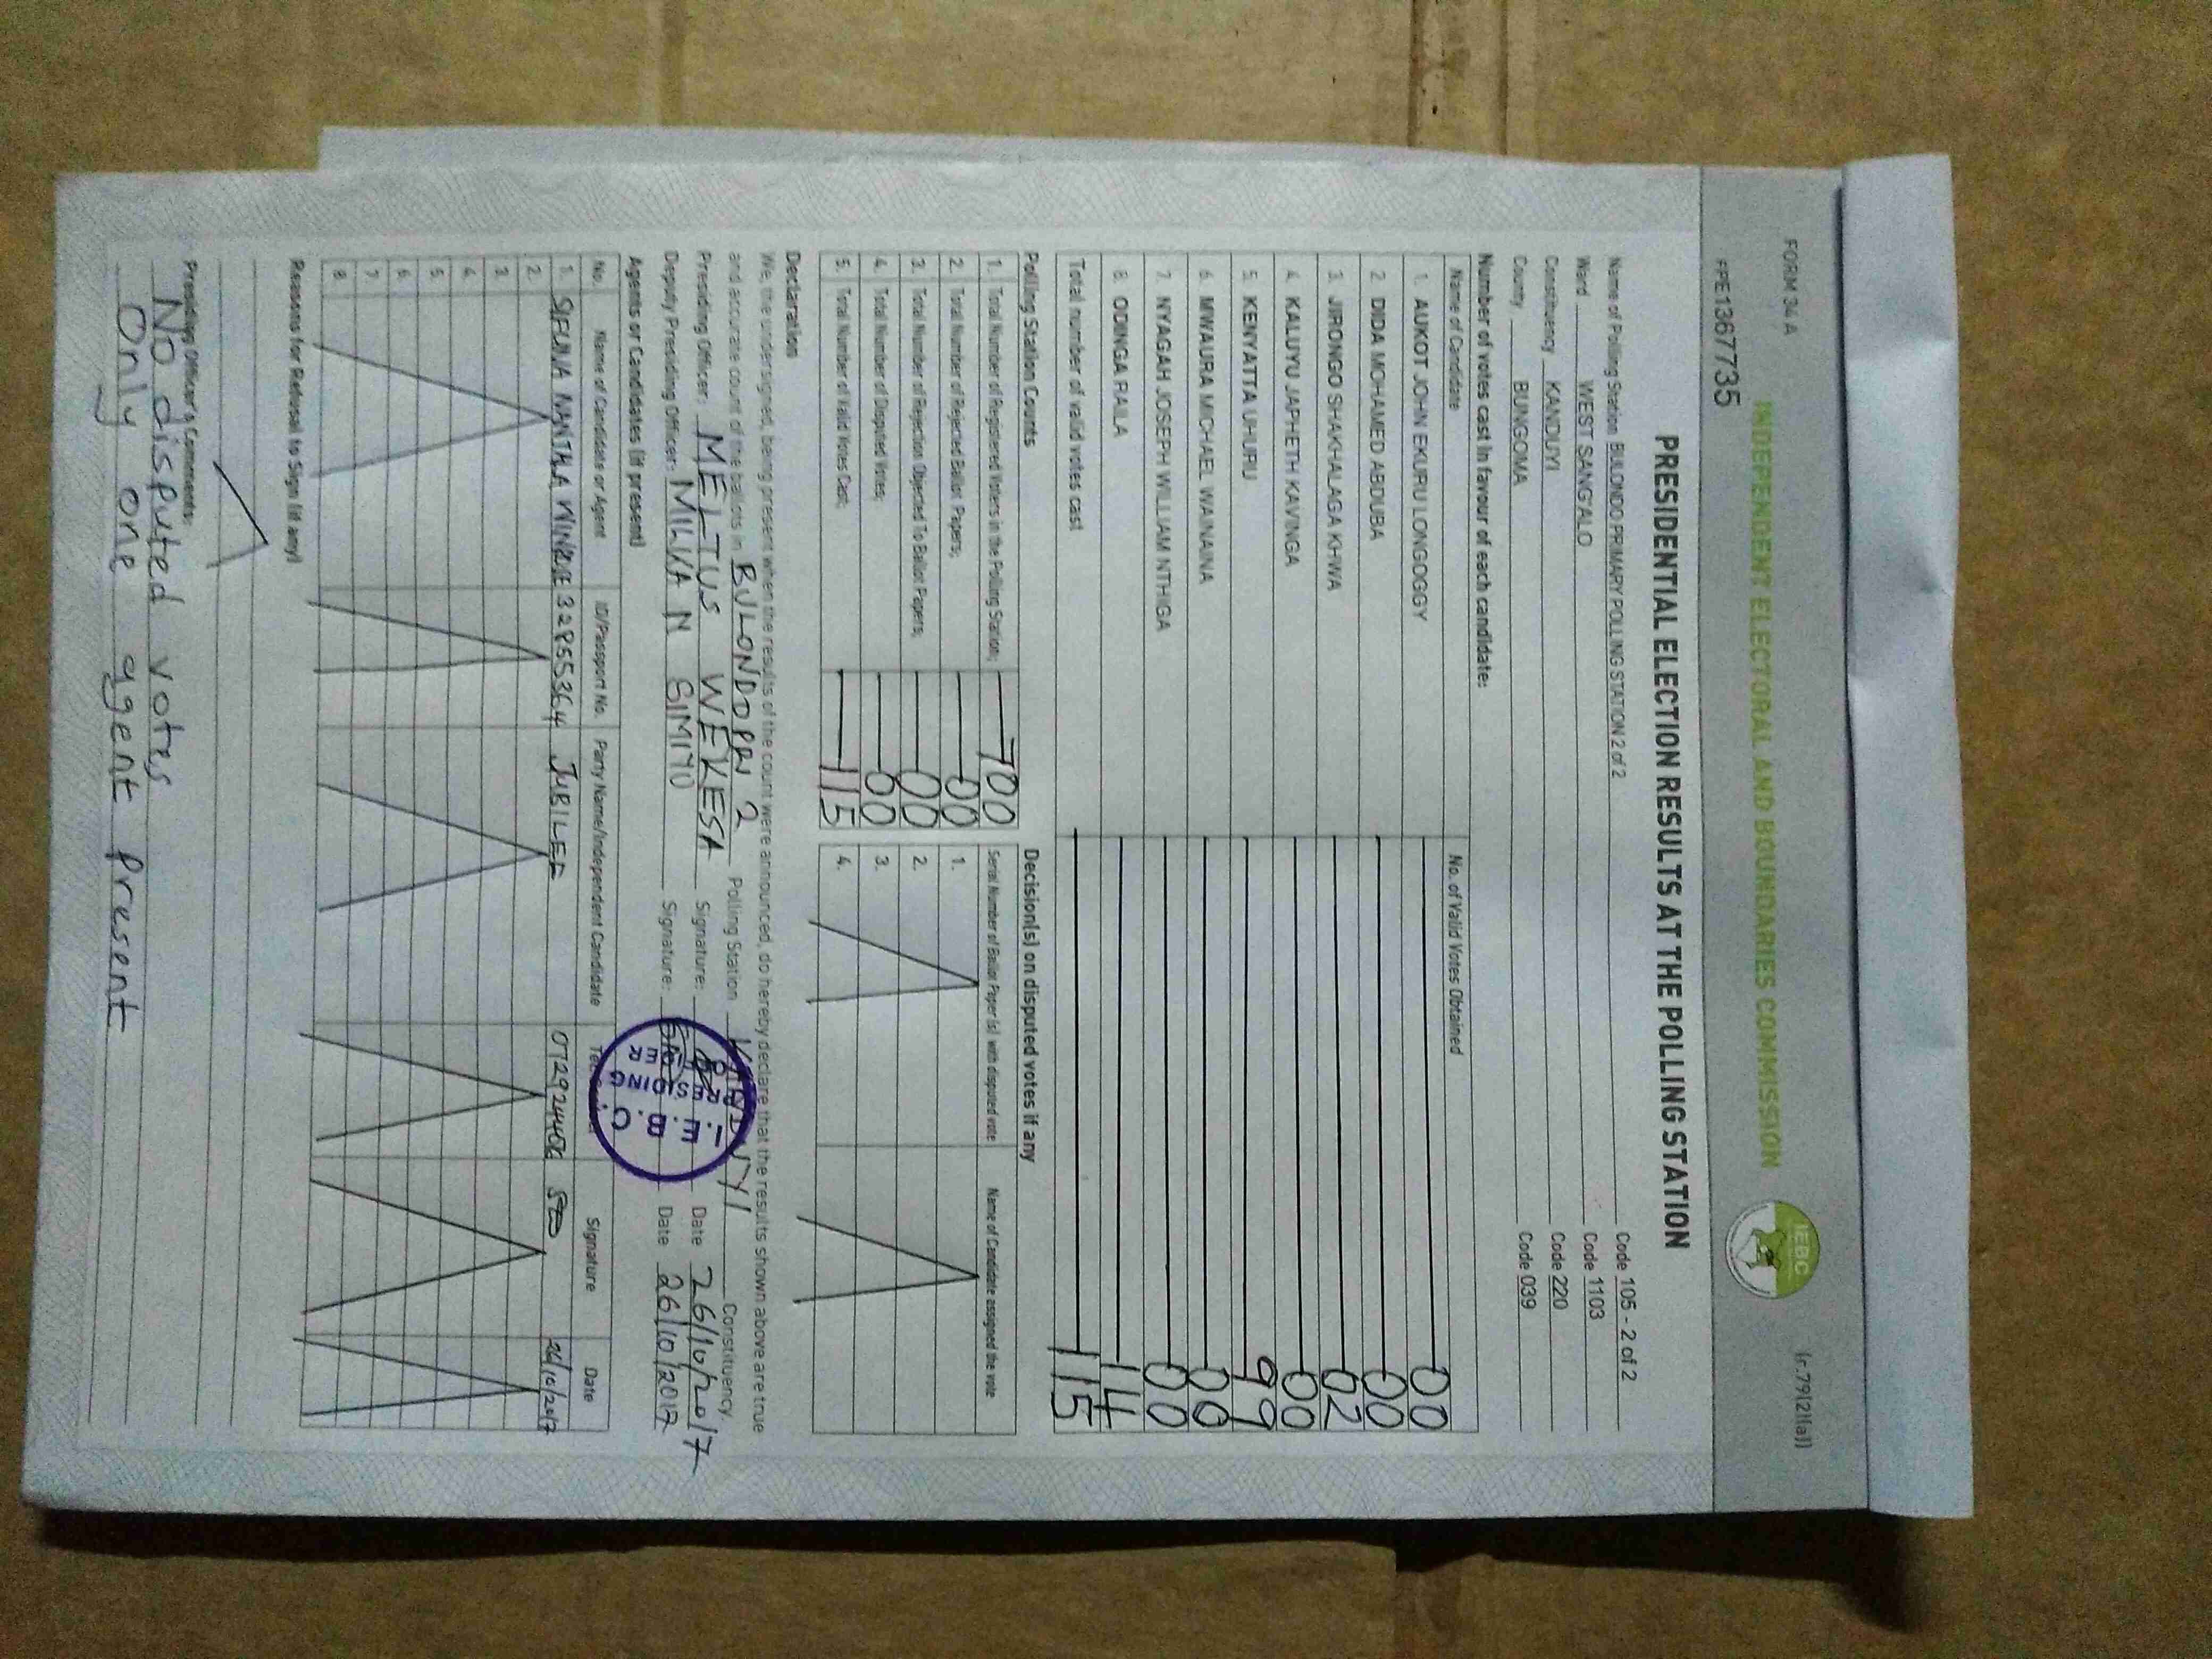 FORM 34 A
(r.79(2)(a))
INDEPENDENT ELECTORAL AND BOUNDARIES COMMISSION
IEBC
PPE1367735
PRESIDENTIAL ELECTION RESULTS AT THE POLLING STATION
Name of Polling Station BULONDO PRIMARY POLLING STATION 2 of 2 Code 105 - 2 of 2
Ward WEST SANG'ALO Code 1103
Constituency KANDUYI Code 220
County BUNGOMA Code 039
Number of votes cast in favour of each candidate:
Name of Candidate No. of Valid Votes Obtained
1. AUKOT JOHN EKURU LONGOGGY 00
2. DIDA MOHAMED ABDUBA 00
3. JIRONGO SHAKHALAGA KHWA 02
4. KALUYU JAPHETH KAVINGA 00
5. KENYATTA UHURU 99
6. MWAURA MICHAEL WAINAINA 00
7. NYAGAH JOSEPH WILLIAM NTHIGA 00
8. ODINGA RAILA 14
Total number of valid votes cast 115
Polling Station Counts
1. Total Number of Registered Voters in the Polling Station; 700
2. Total Number of Rejected Ballot Papers; 00
3. Total Number of Rejection Objected To Ballot Papers; 00
4. Total Number of Disputed Votes; 00
5. Total Number of Valid Votes Cast; 115
Decision(s) on disputed votes if any
Serial Number of Ballot Paper (s) with disputed vote Name of Candidate assigned the vote
1.
2.
3.
4.
Declaration
We, the undersigned, being present when the results of the count were announced, do hereby declare that the results shown above are true
and accurate count of the ballots in BULONDO PRI 2 Polling Station KANDUYI Constituency.
Presiding Officer: MELTUS WEKESA Signature: Date 26/10/2017
Deputy Presiding Officer: MILKA N SIMIYO Signature: Date 26/10/2017
I.E.B.C.
PRESIDING
Agents or Candidates (if present)
No. Name of Candidate or Agent ID/Passport No. Party Name/Independent Candidate Signature Date
1. SIFUNA NANJALA WINROSE JUBILEE 26/10/2017
2.
3.
4.
5.
6.
7.
8.
Reasons for Refusal to Sign (if any)
Presiding Officer's Comments:
No disputed votes
Only one agent present